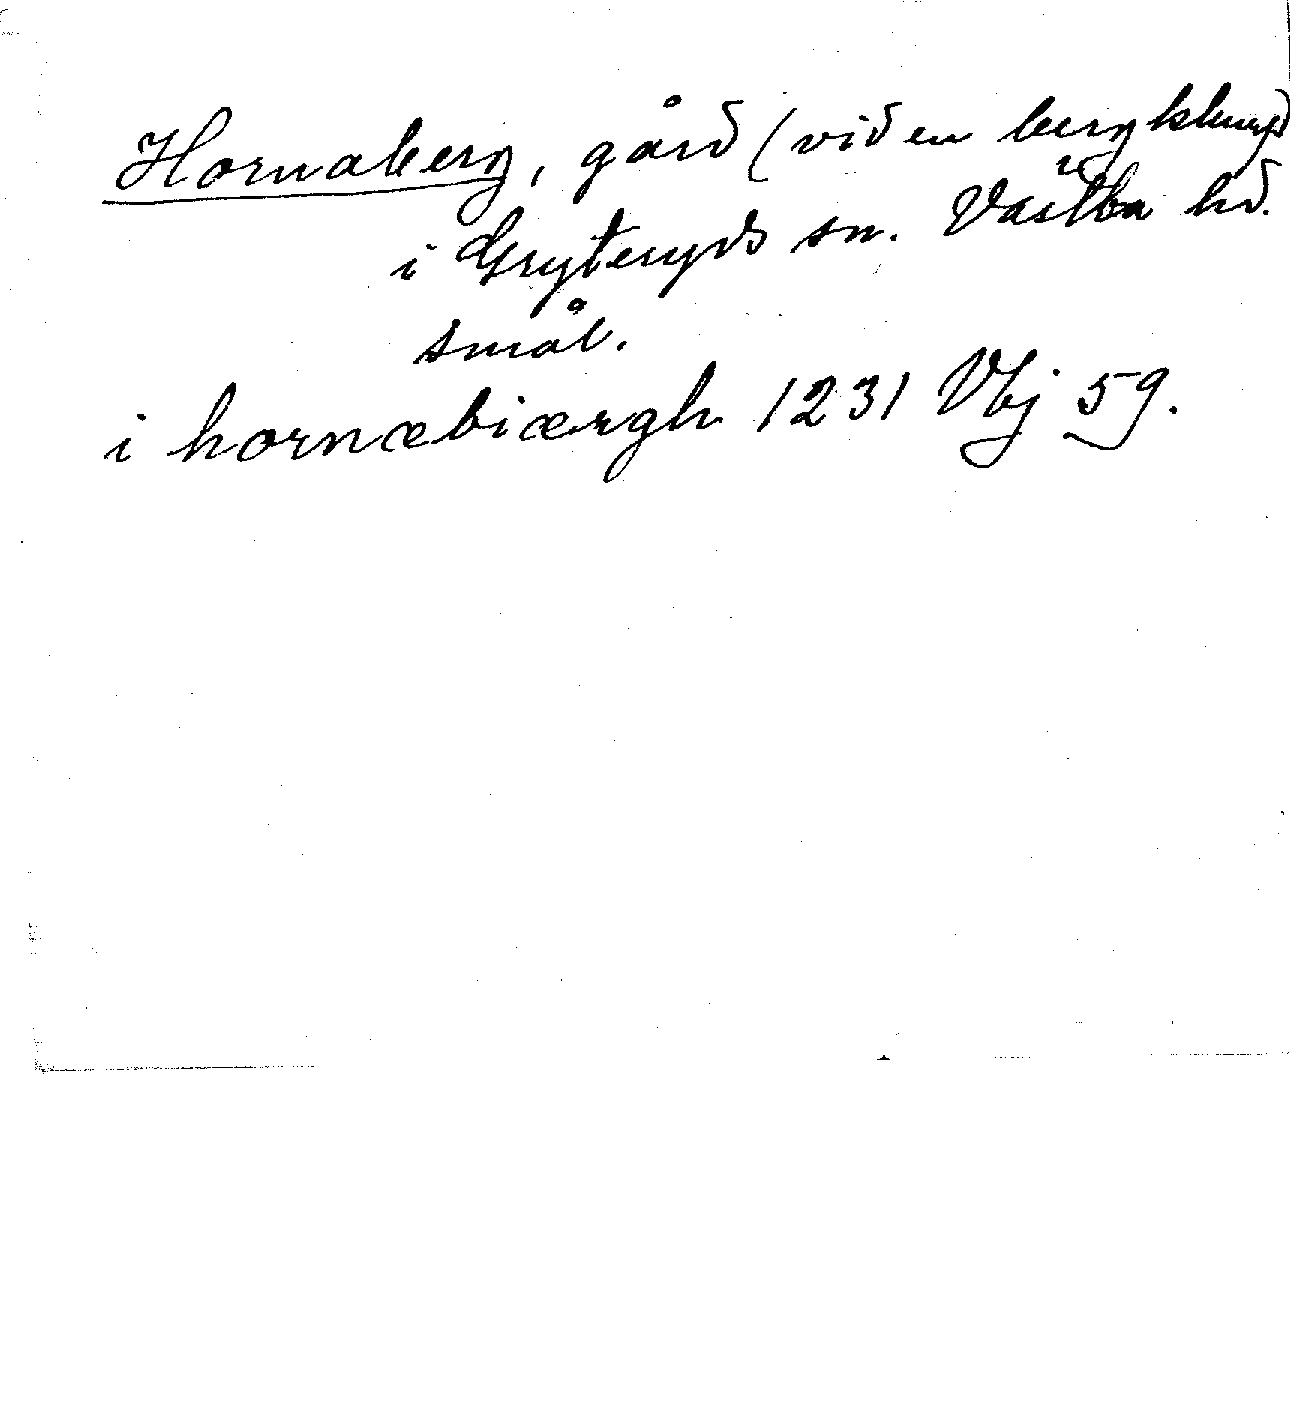 Hornaberg, gård (vid en bergklump)
i Gryteryds sn. Västbo hd.
Smål.
i hornæbiærgh 1231 Vbj 59.